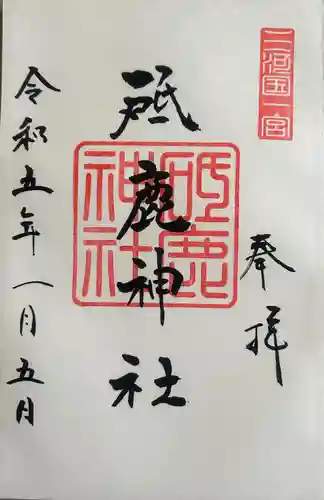 三河国一宮
奉拝
砥鹿神社
砥鹿神社
令和五年一月五日